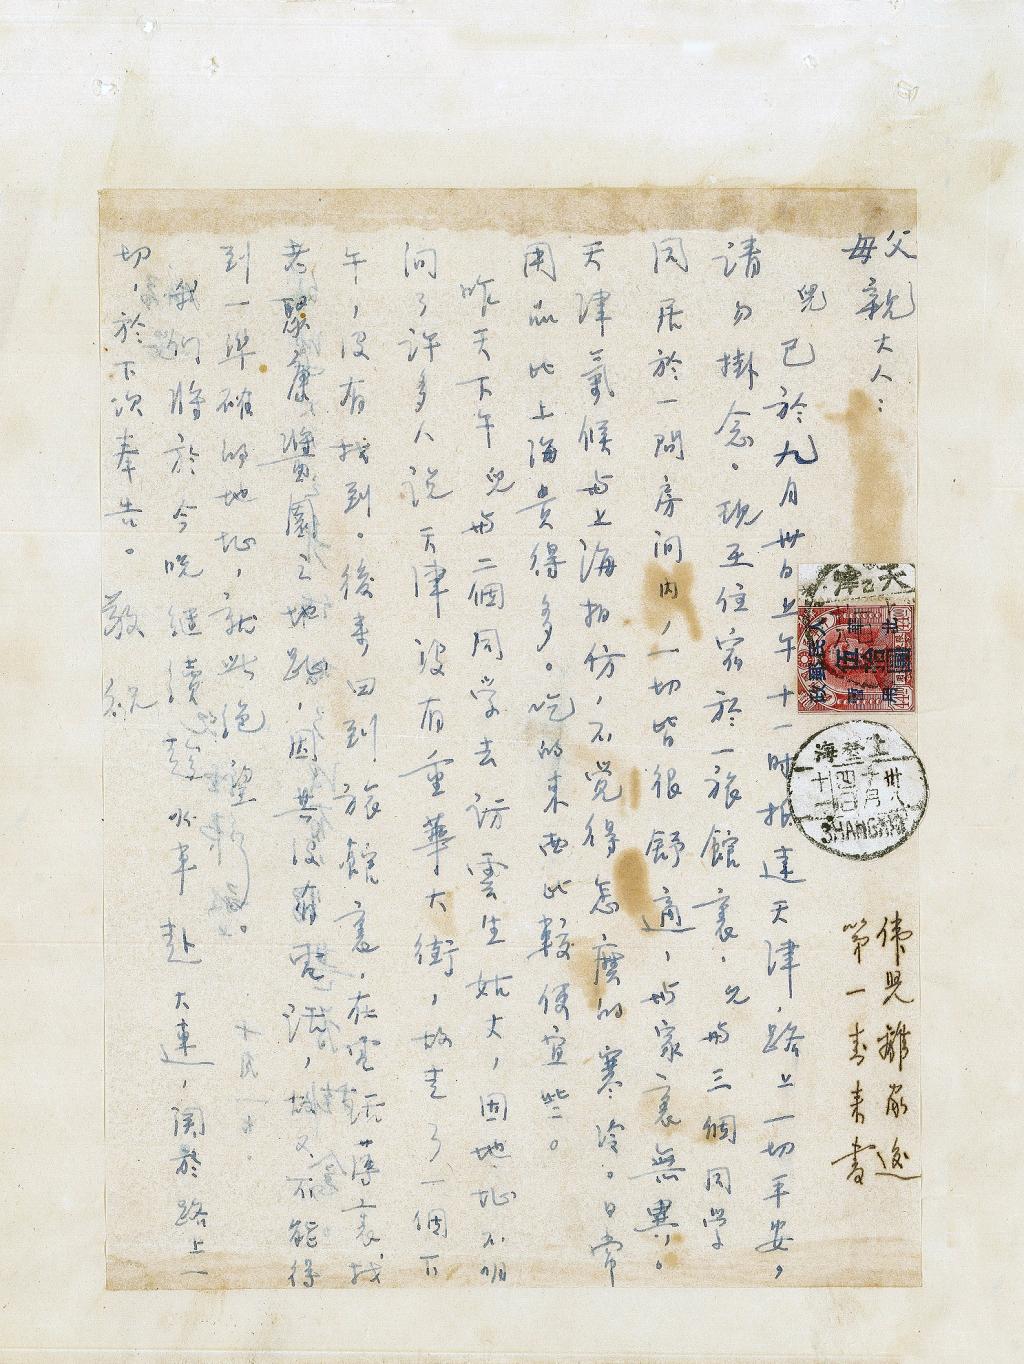 父
母親大人：
兒已於九月卅日上午十一時抵達天津，路上一切平安，
請勿掛念。現在住宿於一旅館裏，兒與三個同學
同居於一間房间內，一切皆很舒適，與家裏無異。
天津氣候與上海相仿，不覺得怎麽的寒冷。日常
用品比上海貴得多。吃的東西比較便宜些。
昨天下午兒與二個同学去訪雲生姑丈，因地址不明
问了许多人说天津没有重華大街，故走了一個下
午，没有找到。後来回到旅館裏，在電話薄裏找
老聚康醬園之地址，因其没有電話，故又不能得
到一準確的地址，就此絶望
我们將於今晚继續趁火車赴大連，関於路上一
切，於下次奉告。敬祝
偉兒離家後
第一封来書
天津
人民郵政
華北
伍拾圓
暫用
上海
卅八
十月
四日
十一
SHANGHAI